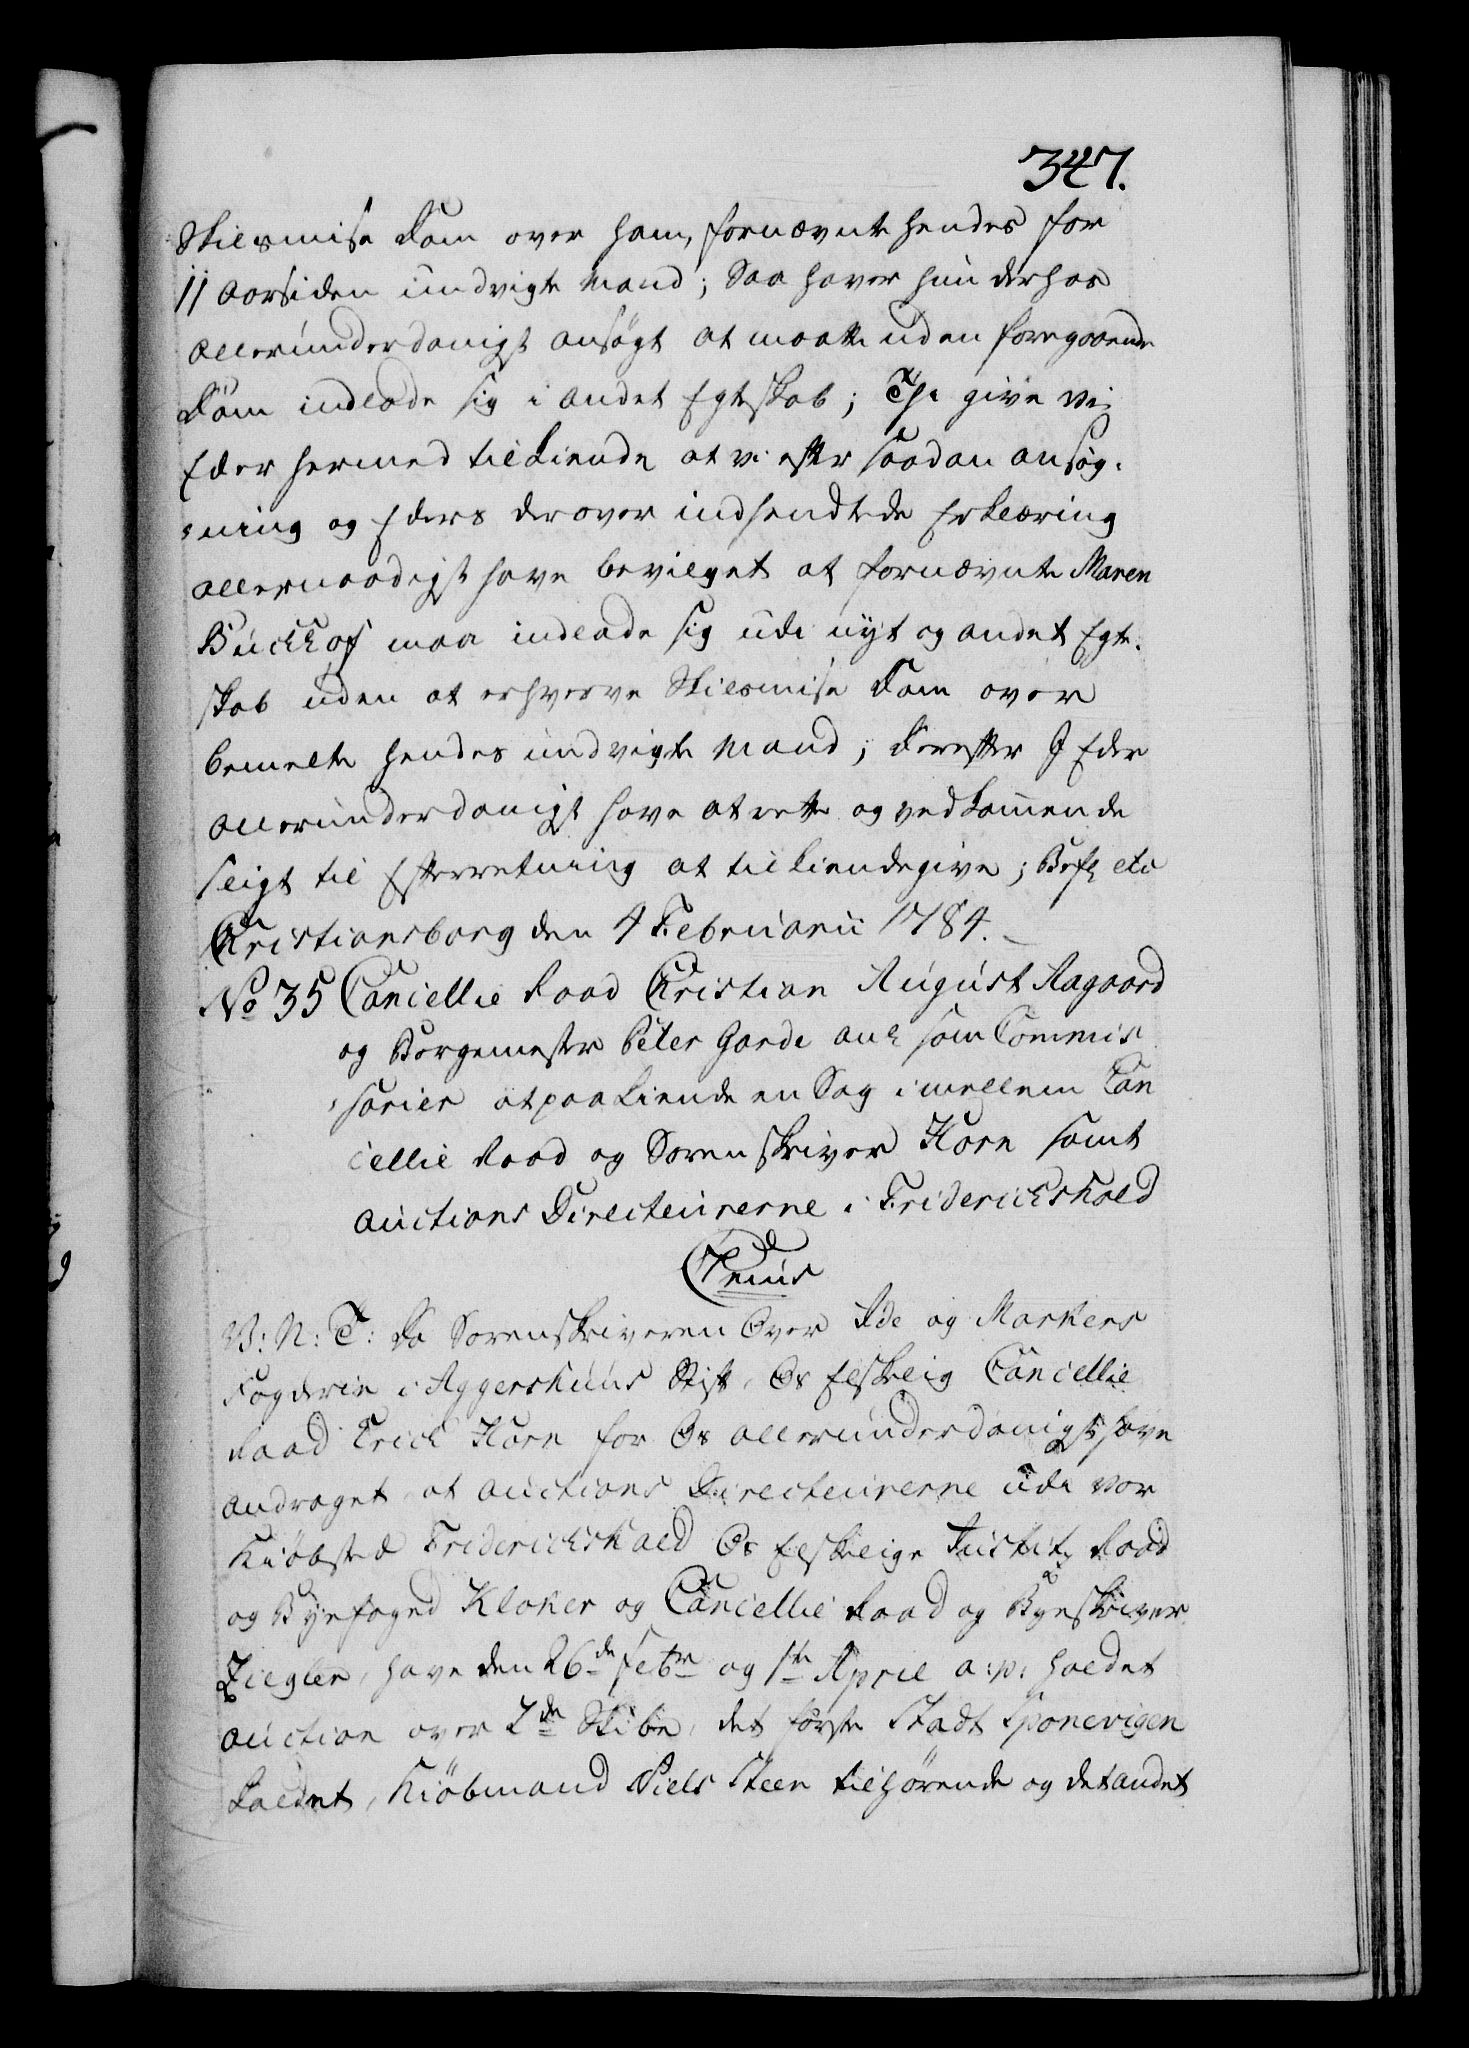 347.
Skilsmisse Dom over ham, fornævnte hendes for
11 Aar siden undvigte Mand; Saa haver hun derhos
allerunderdanigst ansøgt at maatte uden foregaaende
Dom indlade sig i andet Egteskab; Thi give vi
Eder hermed tilkiende at vi efter saadan ansøg-
-ning og Eders derover indsendtede Erklæring
allernaadigst have bevilget at fornævnte Maren
Buckhof maa indlade sig udi nyt og andet Egte-
skab uden at erhverve Skilsmisse Dom over
bemelte hendes undvigte Mand; Derefter I Eder
allerunderdanigst have at rette og vedkommende
sligt til Efterretning at tilkiendegive; Befl etc
Christiansborg den 4 Februarii 1784.
No 35 Cancellie Raad Christian August Aagaard
og Borgemester Peter Garde anl som Commis
-sarier at paakiende en Sag imellem Can
cellie Raad og Sorenskriver Horn samt
Auctions Directeurerne i Friderichshald
V: N: T: Da Sorenskriveren Over Ide og Markers
Fogderie i Aggershuus Stift, Os Elskelig Cancellie
Raad Erich Horn for Os allerunderdanigst have
andraget at Auctions Directeurerne udi vor
Kiøbsted Friderichshald Os Elskelige Justitz Raad
og Byefoged Kloker og Cancellie Raad og Byeskriver
Ziegler, have den 26de Febr og 1te April a: p: holdet
Auction over 2de Skibe, det første Stadt Sponevigen
kaldet, Kiøbmand Niels Steen tilhørende og det andet